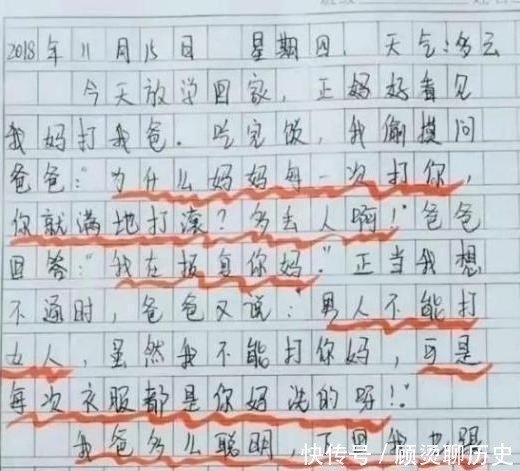 2018年11月15日 星期四. 天气:多云
今天放学回家,正妈好看见
我妈打我爸.吃完饭,我偷摸问
爸爸:"为什么妈妈每一次打你,
你就满地打滚?多丢人啊!"爸爸
回答:"我在报复你妈."正当我想
不通时,爸爸又说:男人不能打
女人,虽然我不能打你妈,可是
每次衣服都是你妈洗的呀!"
我爸多么聪明,下回我也
快传号/顾烫聊历史